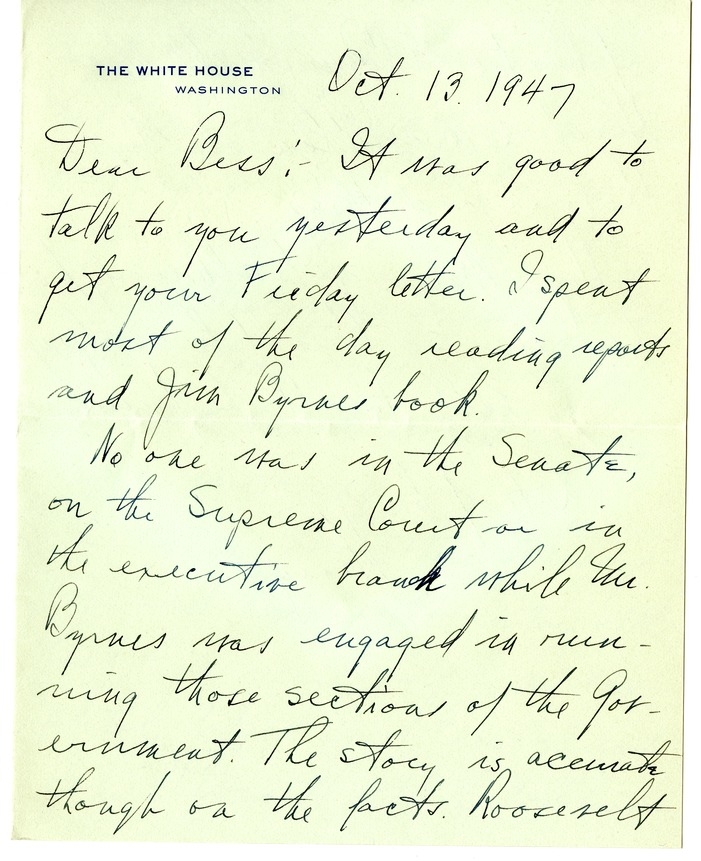 THE WHITE HOUSE
WASHINGTON
Oct. 13. 1947
Dear Bess:- It was good to
talk to you yesterday and to
get your Friday letter. I spent
most of the day reading reports
and Jim Byrnes book.
No one was in the Senate,
on the Supreme Court or in
the executive branch while Mr.
Byrnes was engaged in run-
ning those sections of the Gov-
ernment. The story is accurate
though on the facts. Roosevelt